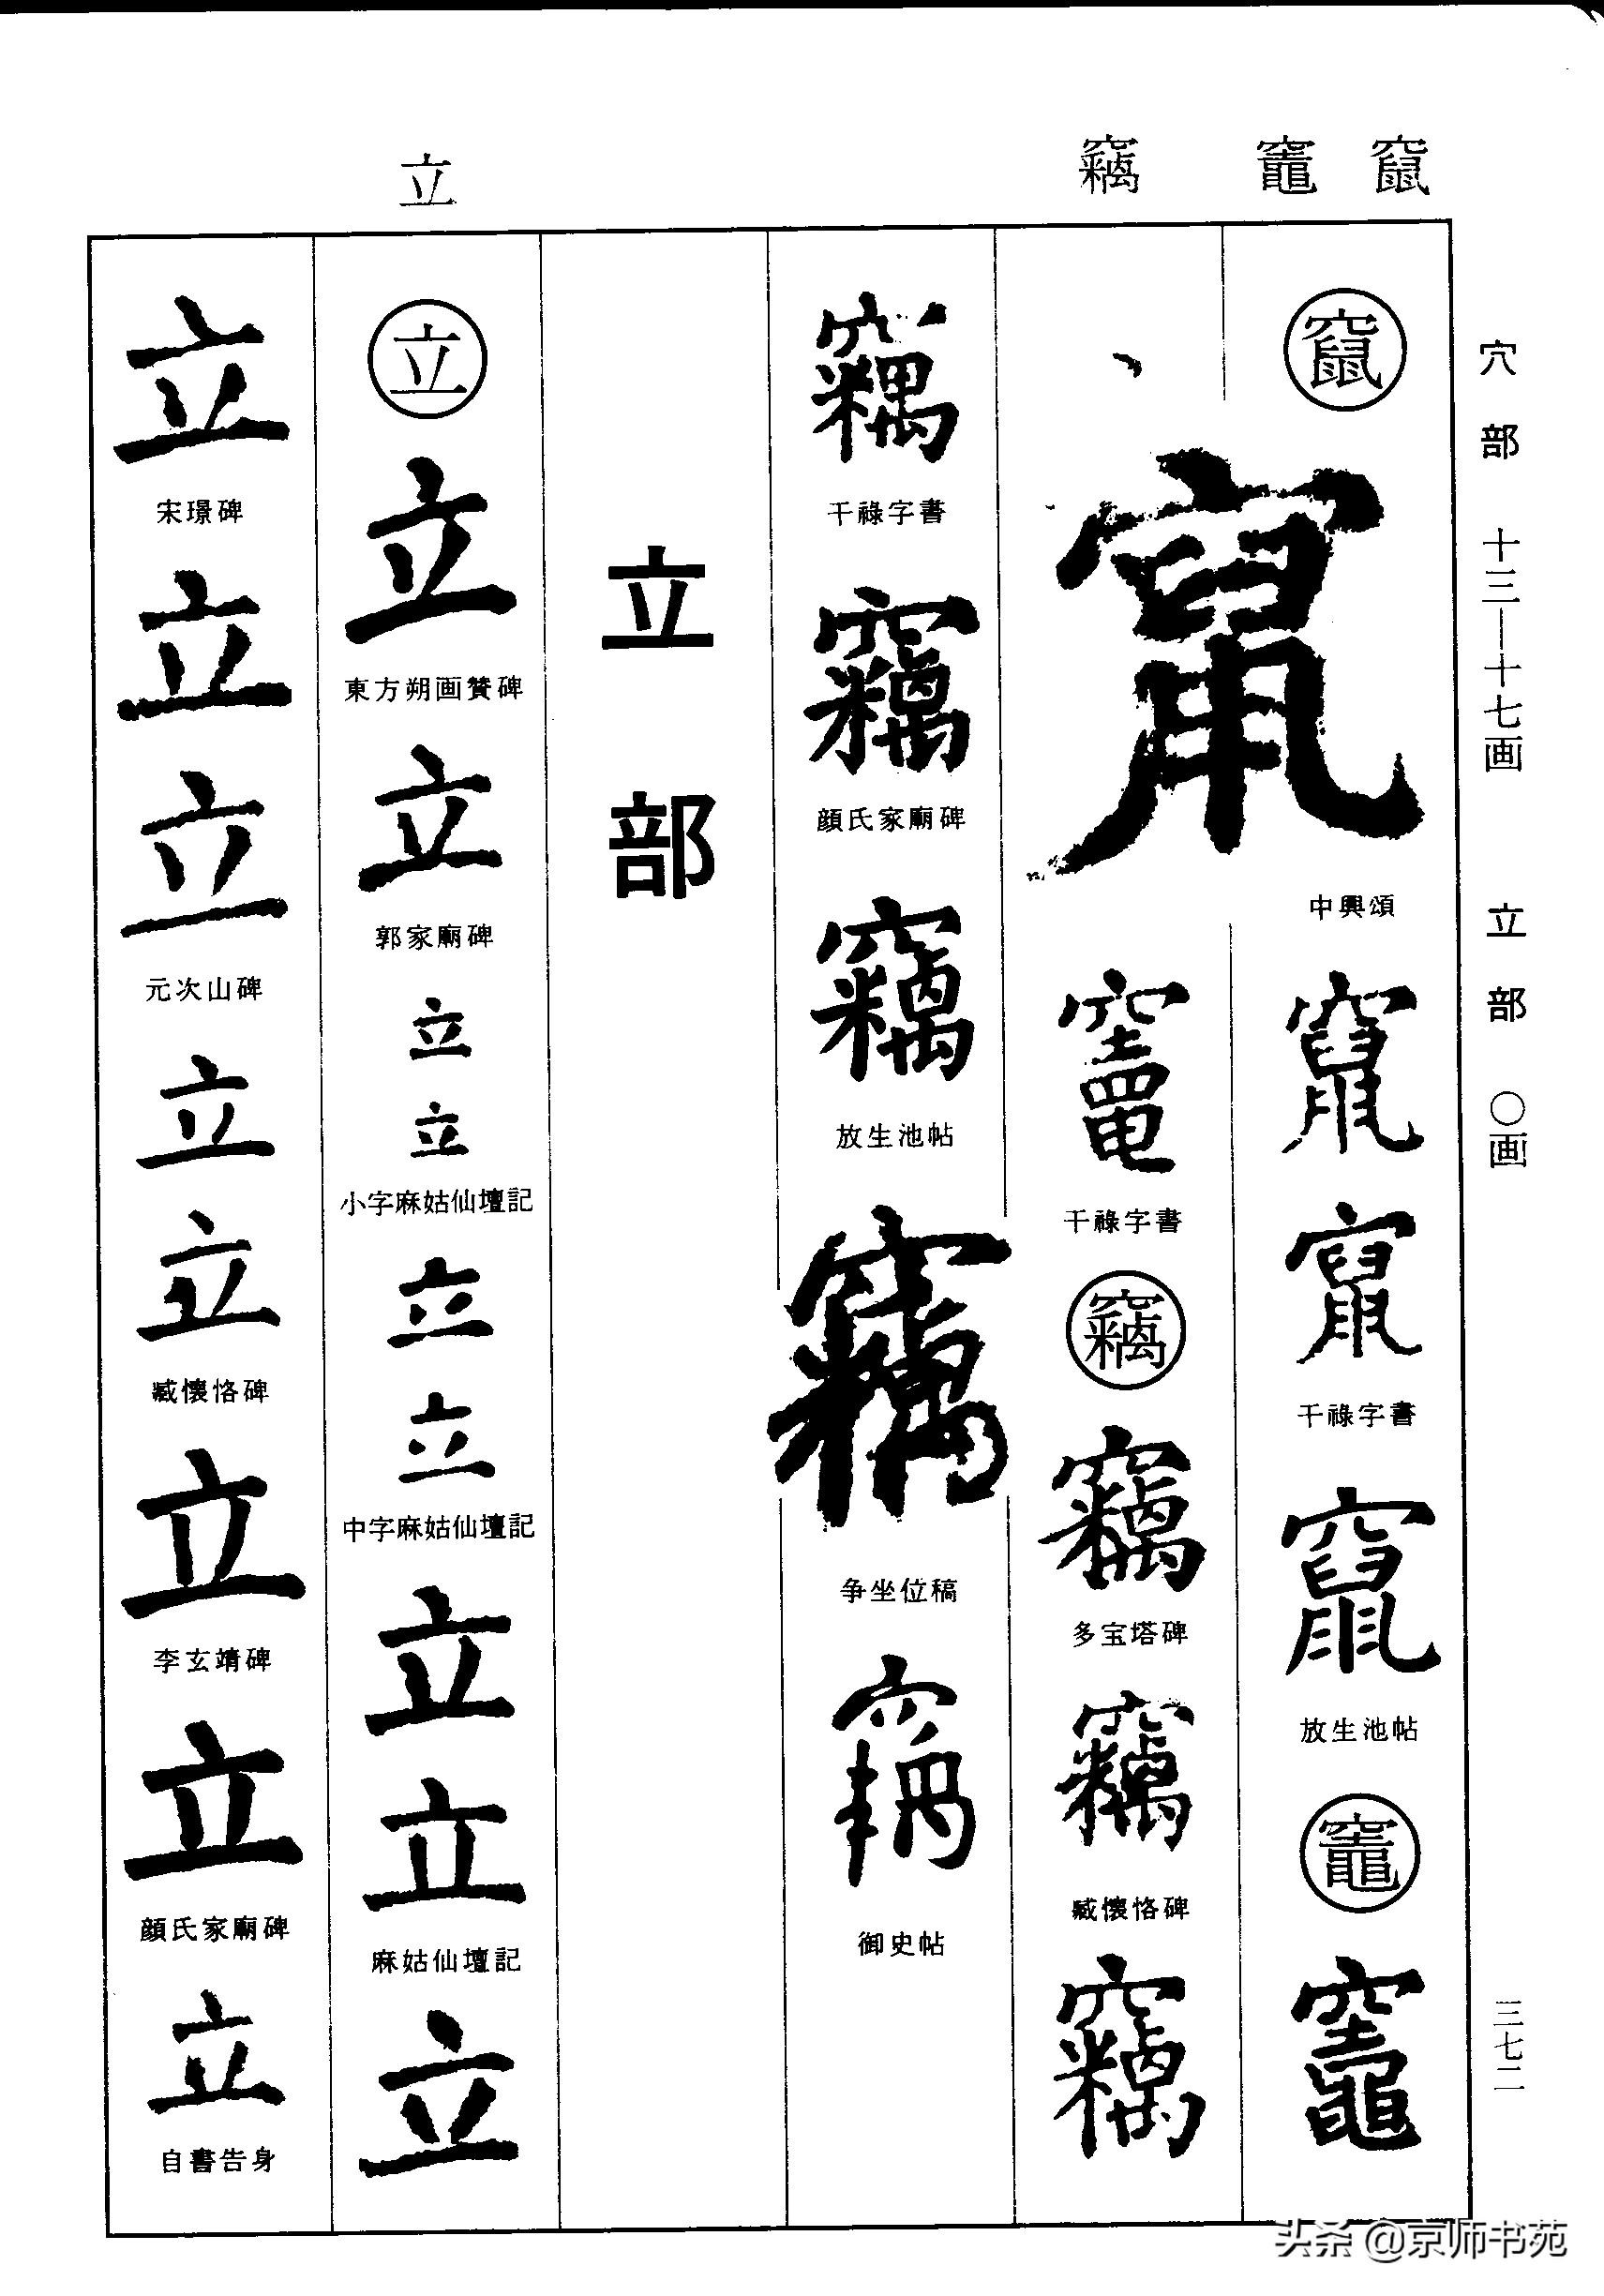 竄 竈 竊 立
穴部 十三—十七画 立部 〇画
三七二
竄
竄
中興頌
竄
竄
干祿字書
竄
放生池帖
竈
竈
竈
干祿字書
竊
竊
多宝塔碑
竊
臧懷恪碑
竊
竊
干祿字書
竊
顔氏家廟碑
竊
放生池帖
竊
争坐位稿
竊
御史帖
立部
立
立
東方朔画贊碑
立
郭家廟碑
立
立
小字麻姑仙壇記
立
立
中字麻姑仙壇記
立
立
麻姑仙壇記
立
立
宋璟碑
立
立
元次山碑
立
立
臧懷恪碑
立
李玄靖碑
立
顔氏家廟碑
立
自書告身
头条 @京师书苑